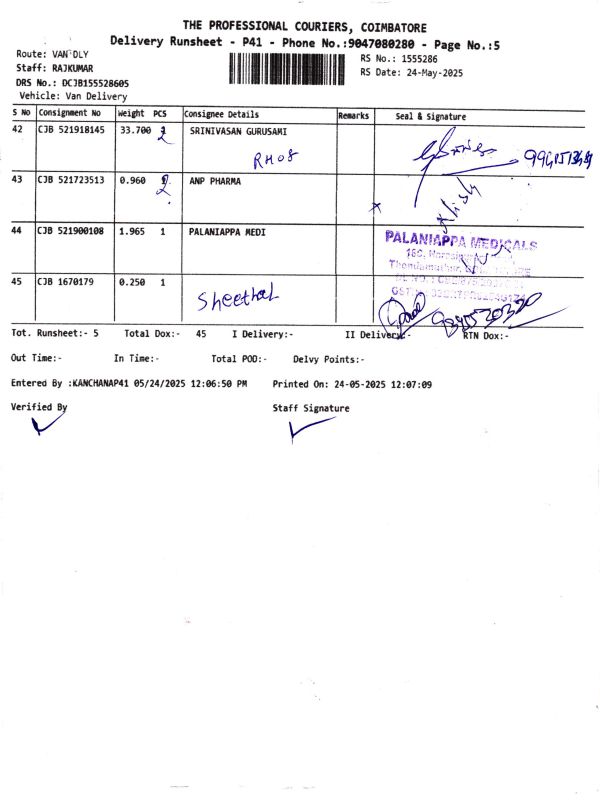 THE PROFESSIONAL COURIERS, COIMBATORE
Delivery Runsheet - P41 - Phone No.:9047080280 - Page No.:5
Route: VAN DLY
Staff: RAJKUMAR
DRS No.: DCJB155528605
Vehicle: Van Delivery
RS No.: 1555286
RS Date: 24-May-2025
S No Consignment No Weight PCS Consignee Details Remarks Seal & Signature
42 CJB 521918145 33.700 2 SRINIVASAN GURUSAMI
RHO8
43 CJB 521723513 0.960 2 ANP PHARMA
44 CJB 521900108 1.965 1 PALANIAPPA MEDI
PALANIAPPA MEDICALS
45 CJB 1670179 0.250 1
Sheethal
Tot. Runsheet:- 5 Total Dox:- 45 I Delivery:- II Delivery:- RTN Dox:-
Out Time:- In Time:- Total POD:- Delvy Points:-
Entered By :KANCHANAP41 05/24/2025 12:06:50 PM Printed On: 24-05-2025 12:07:09
Verified By Staff Signature